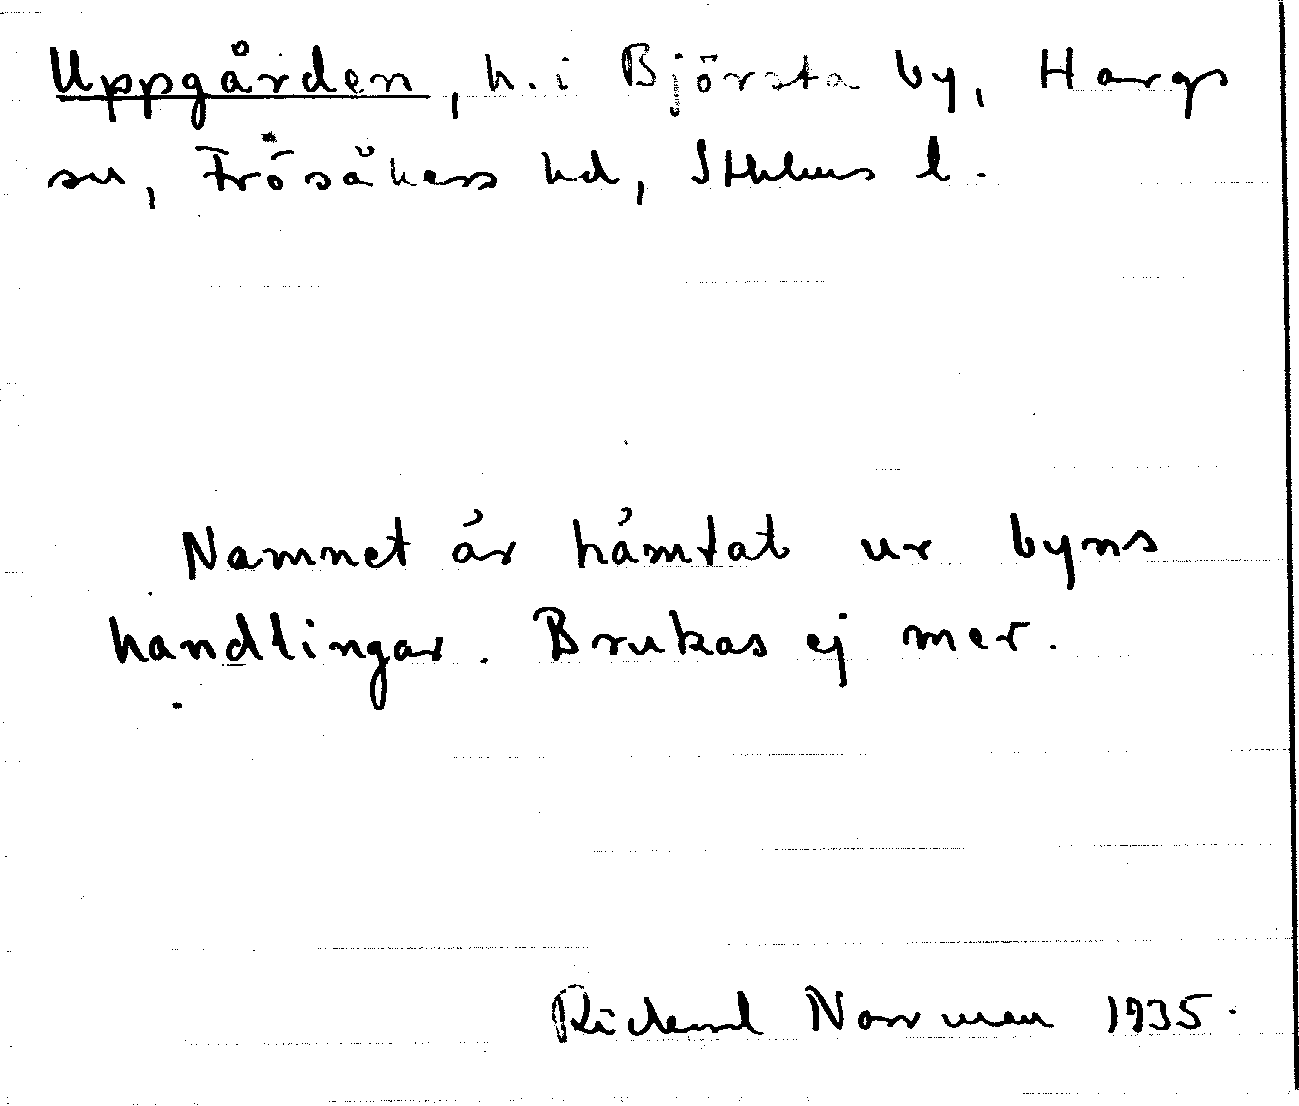 Uppgården, h. i Björsta by, Hargs
sn, Frösåkers hd, Sthlms l.
Namnet är hämtat ur byns
handlingar. Brukas ej mer.
Rickard Norrman 1935.